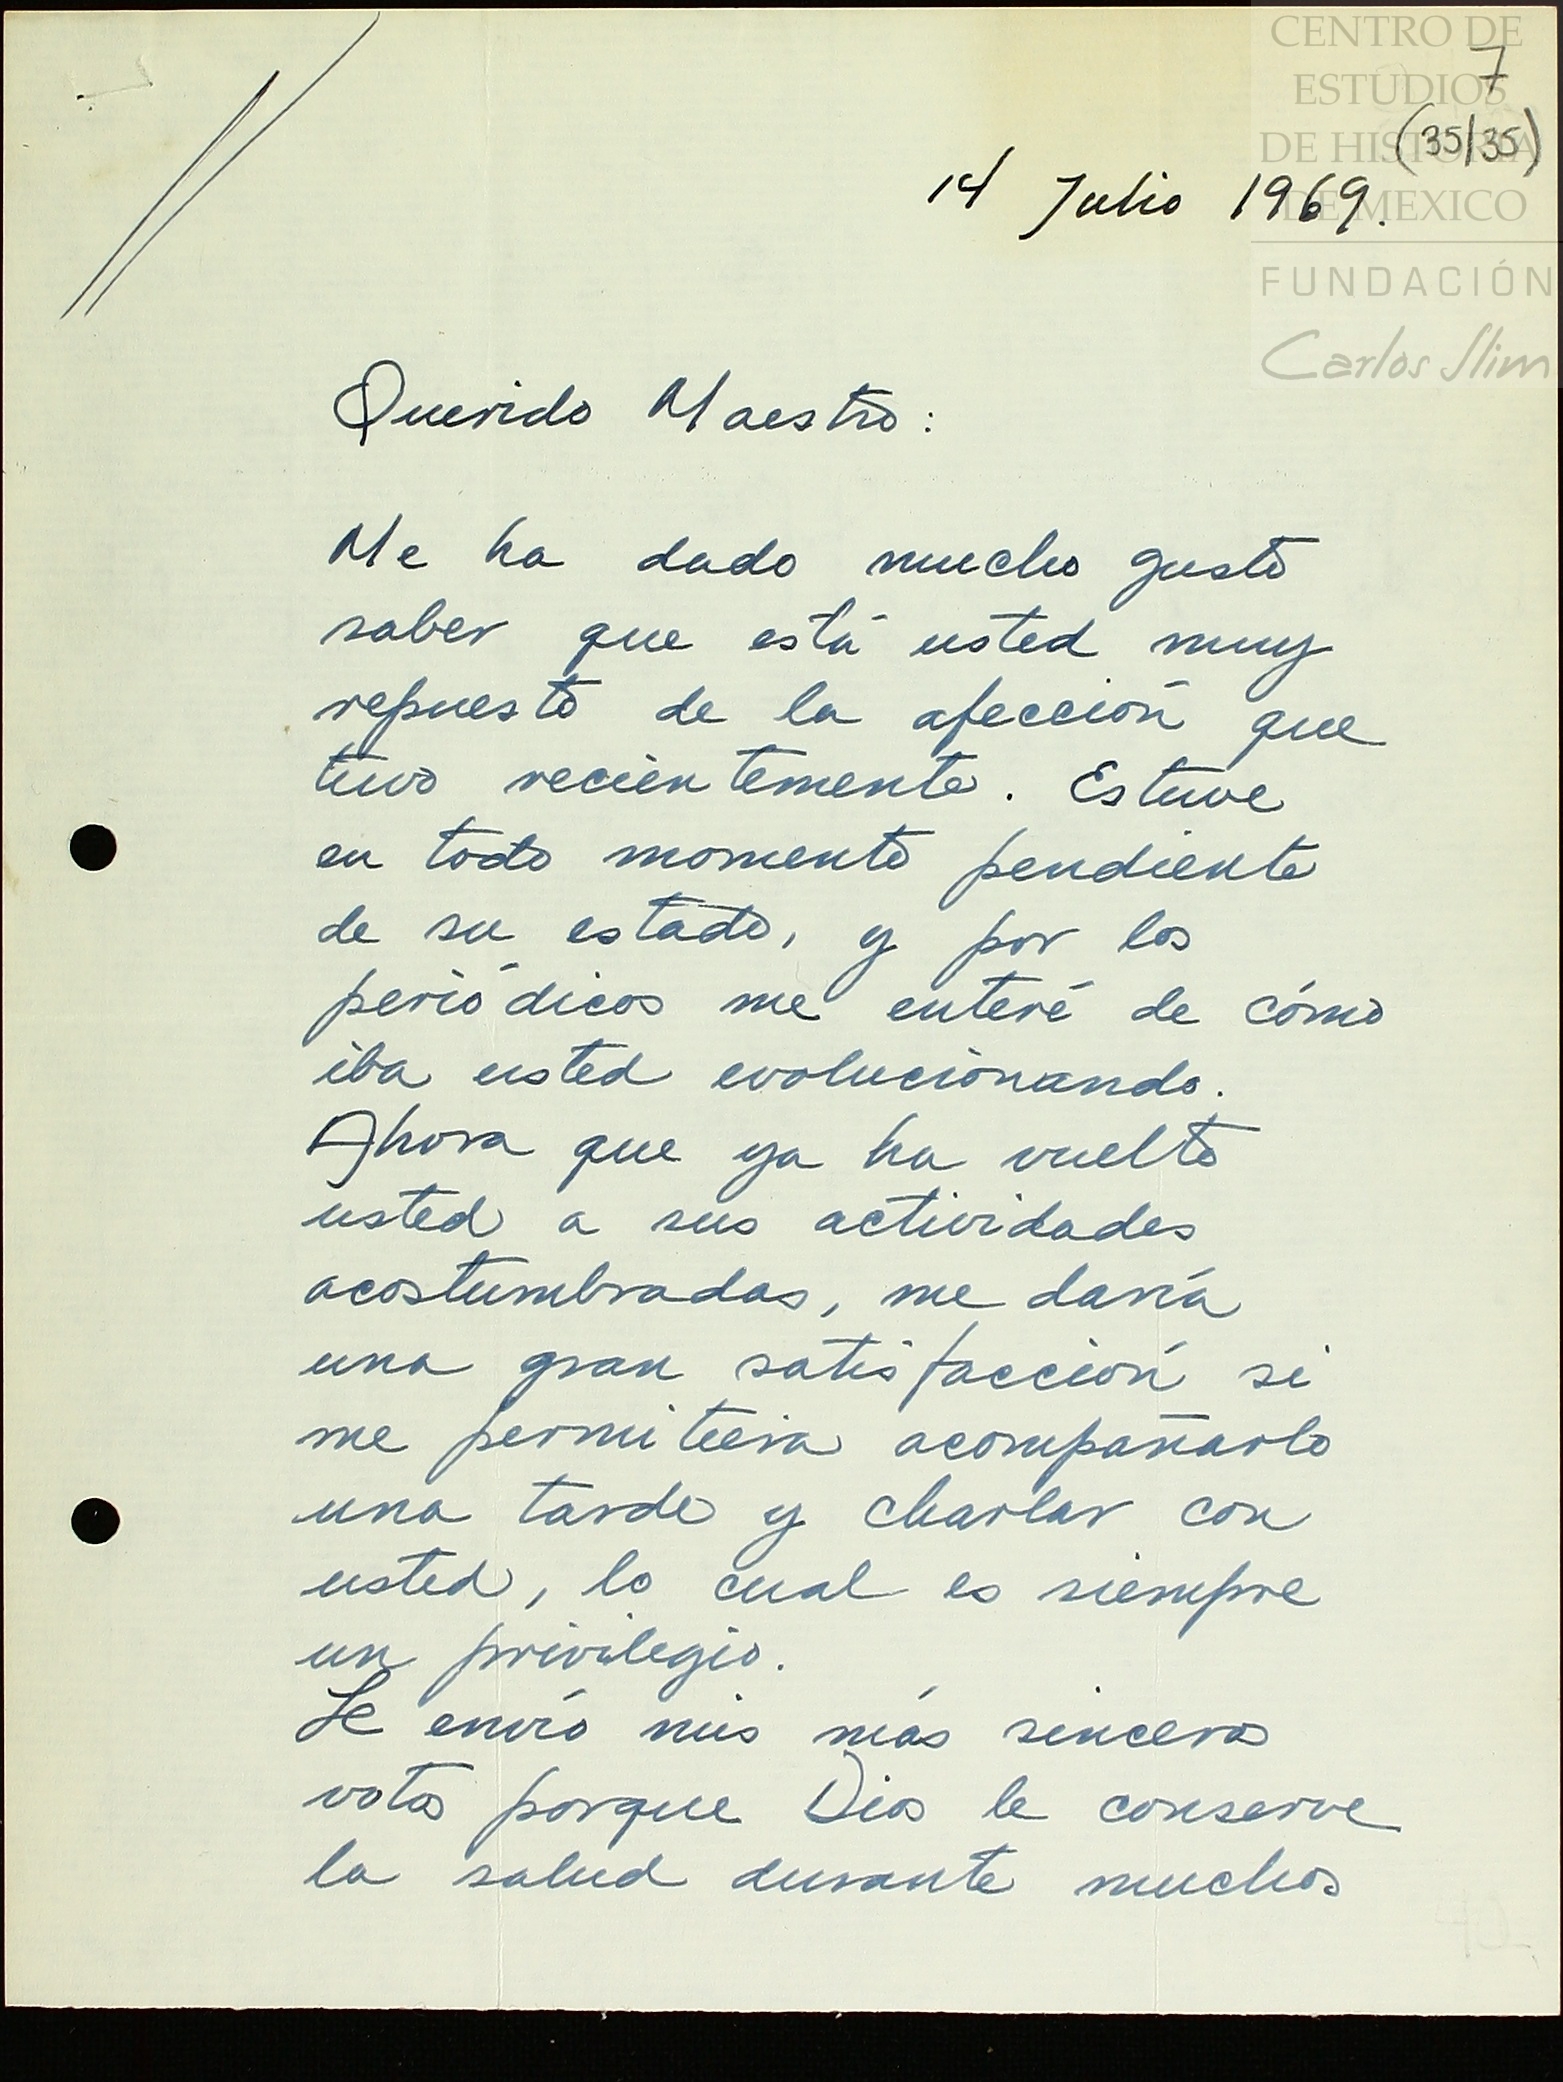 CENTRO DE
ESTUDIOS
DE HISTORIA
DE MEXICO
FUNDACIÓN
Carlos Slim
7
(35/35)
14 Julio 1969.
Querido Maestro:
Me ha dado mucho gusto
saber que está usted muy
repuesto de la afección que
tuvo recientemente. Estuve
en todo momento pendiente
de su estado, y por los
periódicos me enteré de cómo
iba usted evolucionando.
Ahora que ya ha vuelto
usted a sus actividades
acostumbradas, me daría
una gran satisfacción si
me permitiera acompañarlo
una tarde y charlar con
usted, lo cual es siempre
un privilegio.
Le envío mis más sinceros
votos porque Dios le conserve
la salud durante muchos